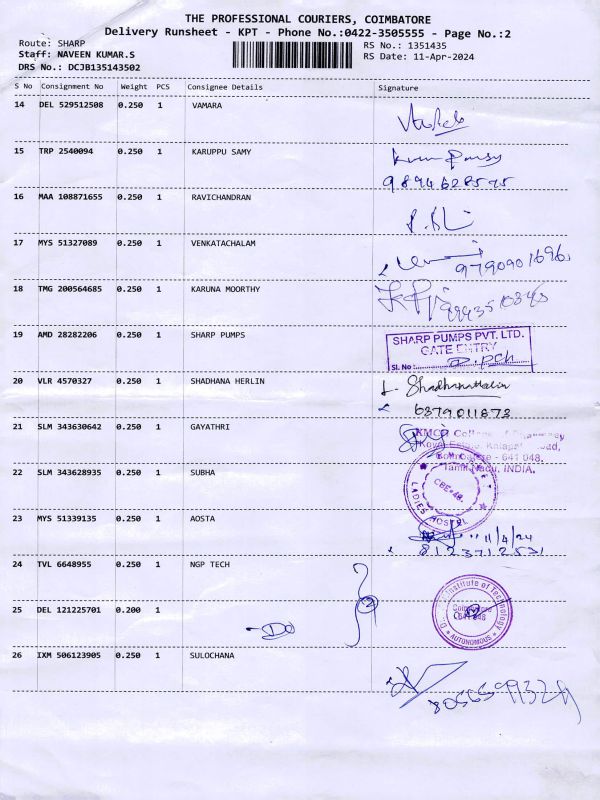 THE PROFESSIONAL COURIERS, COIMBATORE
Delivery Runsheet - KPT - Phone No.:0422-3505555 - Page No.:2
Route: SHARP
Staff: NAVEEN KUMAR.S
DRS No.: DCJB135143502
RS No.: 1351435
RS Date: 11-Apr-2024
S No Consignment No Weight PCS Consignee Details Signature
14 DEL 529512508 0.250 1 VAMARA
15 TRP 2540094 0.250 1 KARUPPU SAMY
9894628575
16 MAA 108871655 0.250 1 RAVICHANDRAN
17 MYS 51327089 0.250 1 VENKATACHALAM
9790901696
18 TMG 200564685 0.250 1 KARUNA MOORTHY
19 AMD 28282206 0.250 1 SHARP PUMPS
SHARP PUMPS PVT. LTD.
GATE ENTRY
Sl. No
20 VLR 4570327 0.250 1 SHADHANA HERLIN
6379011873
21 SLM 343630642 0.250 1 GAYATHRI
KMCH College of Pharmacy
Coimbatore - 641 048.
Tamil Nadu, INDIA.
22 SLM 343628935 0.250 1 SUBHA
CBE-48.
LADIES HOSTEL
23 MYS 51339135 0.250 1 AOSTA
11/4/24
8123712531
24 TVL 6648955 0.250 1 NGP TECH
25 DEL 121225701 0.200 1
-DO
Institute of Technology
Coimbatore
641 048
AUTONOMOUS
26 IXM 506123905 0.250 1 SULOCHANA